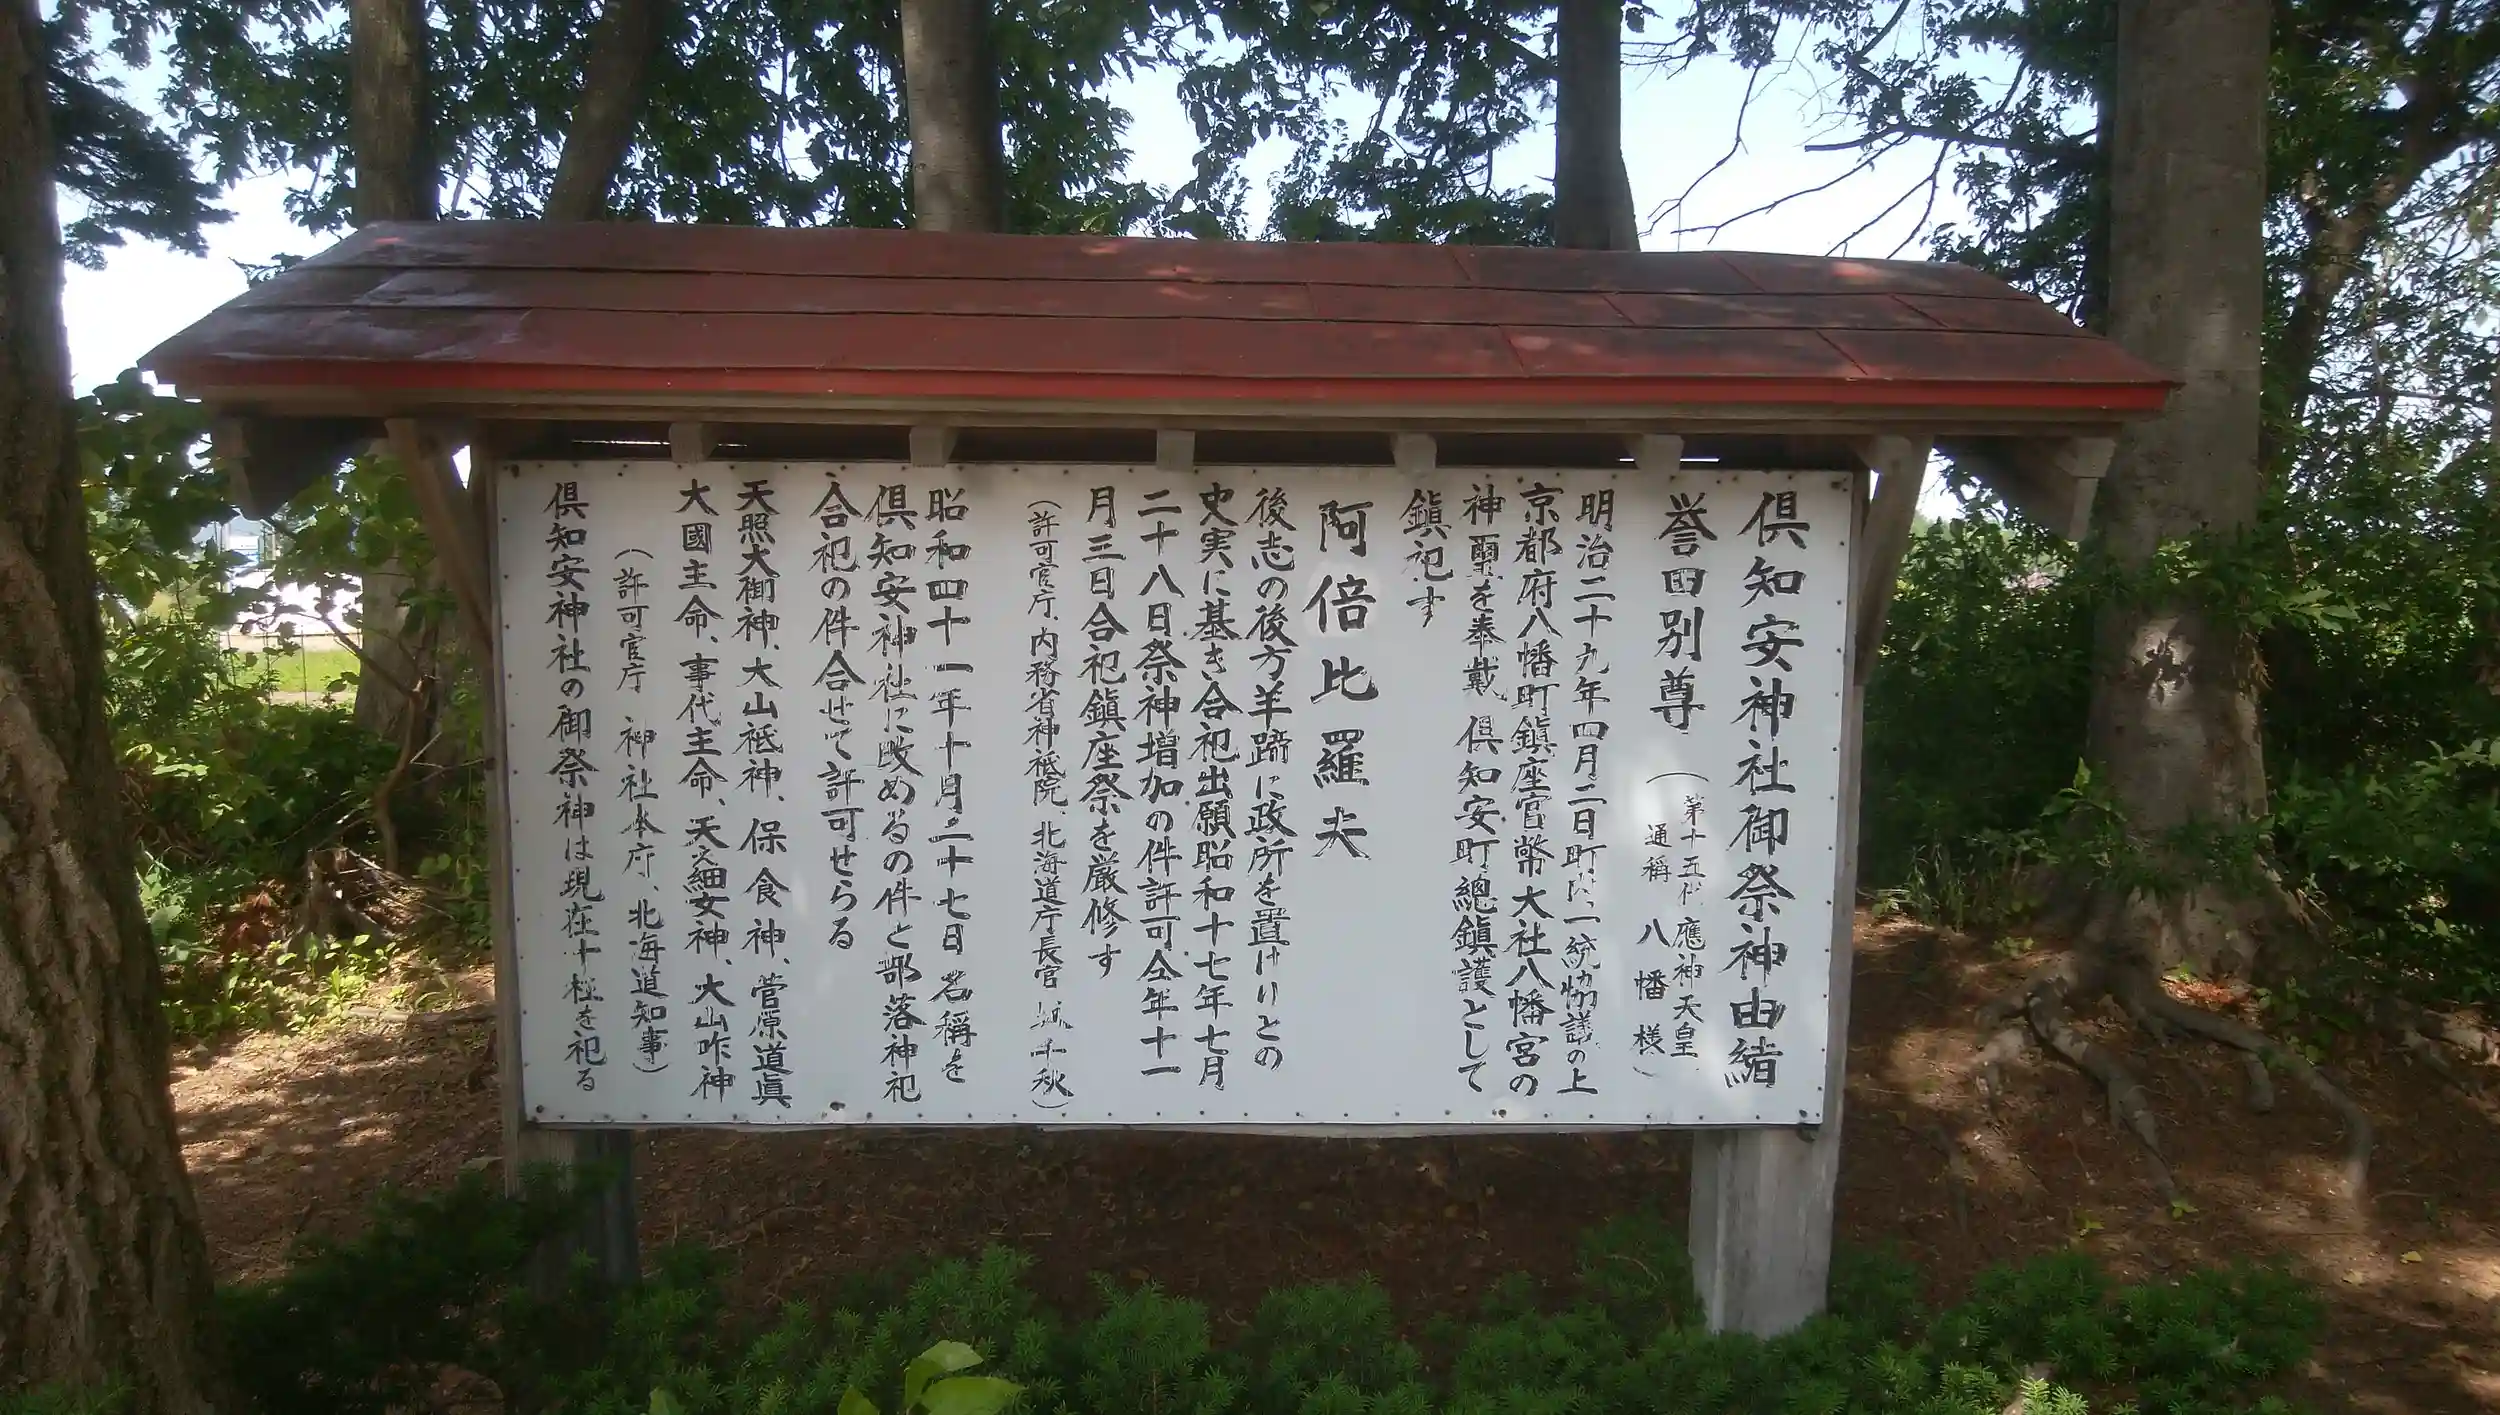 倶知安神社御祭神由緒
誉田別尊
（第十五代 應神天皇
通稱 八幡様）
明治二十九年四月二日町内一統協議の上
京都府八幡町鎮座官幣大社八幡宮の
神璽を奉戴 倶知安町總鎮護として
鎮祀す
阿倍比羅夫
後志の後方羊蹄に政所を置けりとの
史実に基き合祀出願昭和十七年七月
二十八日祭神増加の件許可仝年十一
月三日合祀鎮座祭を厳修す
（許可官庁、内務省神祗院、北海道庁長官 坂千秋）
昭和四十一年十月二十七日名稱を
倶知安神社に改めるの件と部落神祀
合祀の件合せて許可せらる
天照大御神、大山祗神、保食神、菅原道眞
大國主命、事代主命、天鈿女神、大山咋神
（許可官庁 神社本庁、北海道知事）
倶知安神社の御祭神は現在十柱を祀る